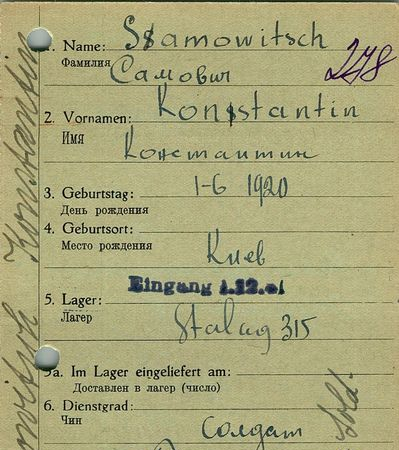 1. Name: Samowitsch
Фамилия
Самович
278
2. Vornamen: Konstantin
Имя
Константин
3. Geburtstag: 1-6 1920
День рождения
4. Geburtsort:
Место рождения
Киев
Eingang 1.12.41
5. Lager:
Лагер
Stalag 315
5a. Im Lager eingeliefert am:
Доставлен в лагер (число)
6. Dienstgrad:
Чин
Солдат
Sold.
Konstantin